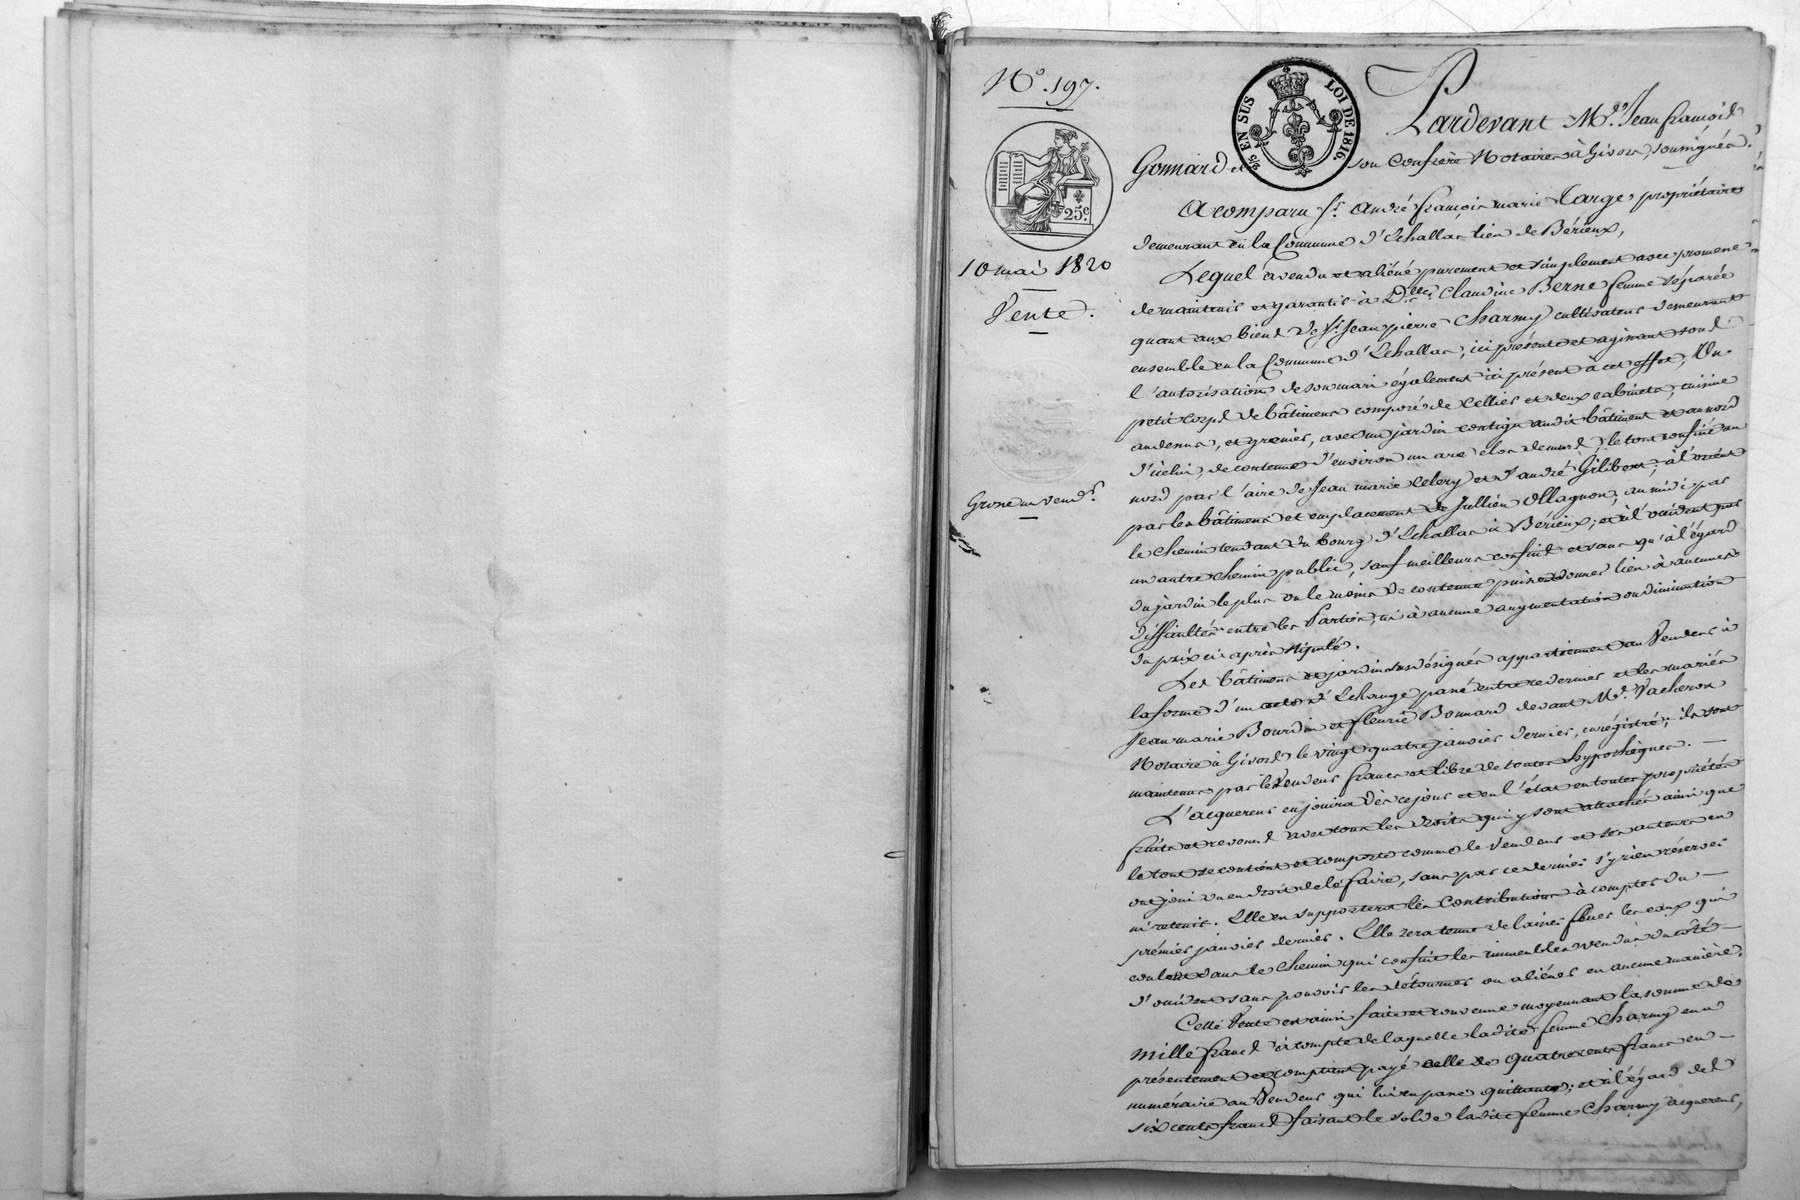 N.o 197.
5/5 EN SUS LOI DE 1816.
25c
10 mai 1820
Vente.
Grosse au vend.r
Pardevant M.e Jean françois
Gonnard et son Confrère Notaires à Givors, soussignés.
A comparu S.r André françois marie Targe propriétaire
demeurant en la Commune d'Echallas lieu de Bérieux,
Lequel a vendu et aliéné purement et simplement avec promesse
de maintenir et garantir à D.elle Claudine Berne femme séparée
quant aux biens de S.r Jean pierre Charmy cultivateur demeurant
ensemble en la Commune d'Echallas, ici présente et agissant sous
l'autorisation de son mari également ici présent à cet effet, Un
petit corps de bâtiment composé de cellier et deux cabinets, cuisine
au dessus, et greniers, avec un jardin contigu audit bâtiment et au nord
d'icelui, de contenue d'environ un are clos de murs, le tout confiné au
nord par l'aire de Jean marie Celery et d'andré Gilibert; à l'orient
par les bâtiment et emplacement de Jullien Ollagnon, au midi par
le chemin tendant du bourg d'Echallas à Bérieux; et à l'occident par
un autre chemin public, sauf meilleurs confins et sans qu'à l'égard
du jardin le plus ou le moins de contenue puisse donner lieu à aucunes
difficultés entre les Parties, ni à aucune augmentation ou diminution
du prix ci après stipulé.
Les bâtiment et jardin susdésignés appartiennent au Vendeur à
la forme d'un acte d'Echange passé entre ce dernier et les mariés
Jean marie Bourdin et fleurie Bonnard devant M.e Vacheron
Notaire à Givors le vingt quatre janvier dernier, enregistré; ils sont
maintenus par le Vendeur francs et libre de toutes hypothèques. —
L'acquereur en jouira dès ce jour et en l'état en toutes propriétés
fruits et revenus avec tous les droits qui y sont attachés ainsi que
le tout se contient et comporte comme le Vendeur et ses auteurs en
ont joui ou eu droit de le faire, sans par ce dernier s'y rien réserver
ni retenir. Elle en supportera les Contributions à compter du —
premier janvier dernier. Elle sera tenue de laisser fluer les eaux qui
coulent dans le chemin qui confine les immeubles vendus du côté —
d'occident sans pouvoir les détourner ou aliéner en aucune manière.
Cette Vente est ainsi faite et convenue moyennant la somme de
mille francs à compte de laquelle ladite femme Charmy en a
présentement et comptant payé celle de quatre cents francs en —
numéraire au Vendeur qui lui en passe quittance; et à l'égard des
six cents francs faisant le solde ladite femme Charmy acquereur,